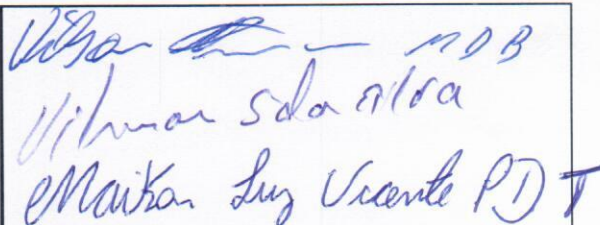 Vilson MDB
Vilmar S da Silva
Maikon Luz Vicente PDT